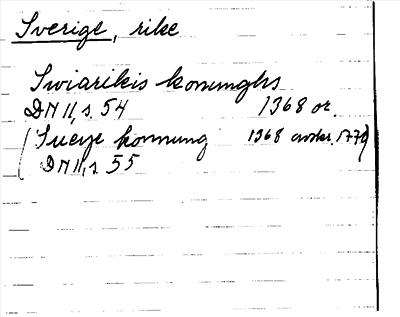 Sverige, rike
Swiarikis konunghs
DN II, s. 54 1368 or.
(Sueye konnung 1368 avskr. 1770)
DN II, s 55